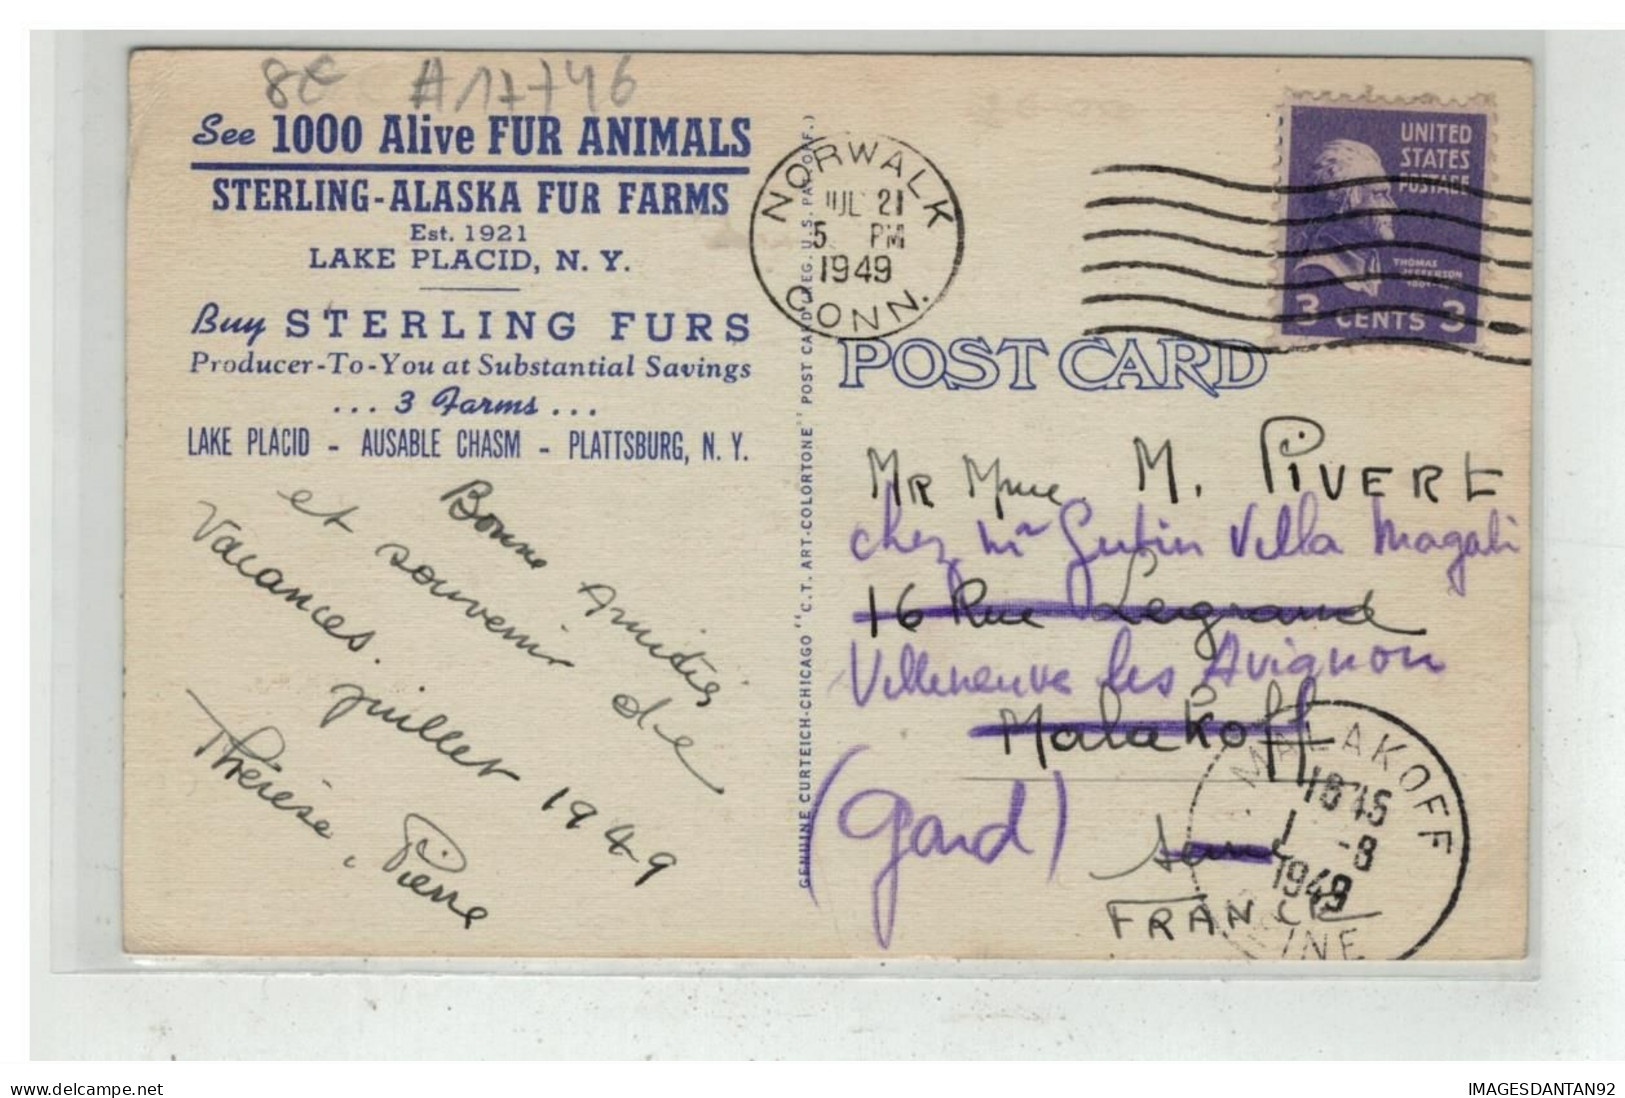 8€ A17746
See 1000 Alive FUR ANIMALS
STERLING-ALASKA FUR FARMS
Est. 1921
LAKE PLACID, N. Y.
Buy STERLING FURS
Producer-To-You at Substantial Savings
... 3 Farms ...
LAKE PLACID - AUSABLE CHASM - PLATTSBURG, N. Y.
Bonne Amitiés
et souvenir de
Vacances.
juillet 1949
Thérèse, Pierre
GENUINE CURTEICH-CHICAGO "C.T. ART-COLORTONE" POST CARD (REG. U.S. PAT. OFF.)
NORWALK
JUL 21
5 PM
1949
CONN.
UNITED
STATES
POSTAGE
THOMAS
JEFFERSON
3 CENTS 3
POST CARD
MR Mme. M. PIVERT
chez Mr Gutin Villa Magali
16 Rue Legrand
Villeneuve les Avignon
Malakoff
(Gard)
Seine
FRANCE
MALAKOFF
1845
1 -8
1949
SEINE
www.delcampe.net
IMAGESDANTAN92